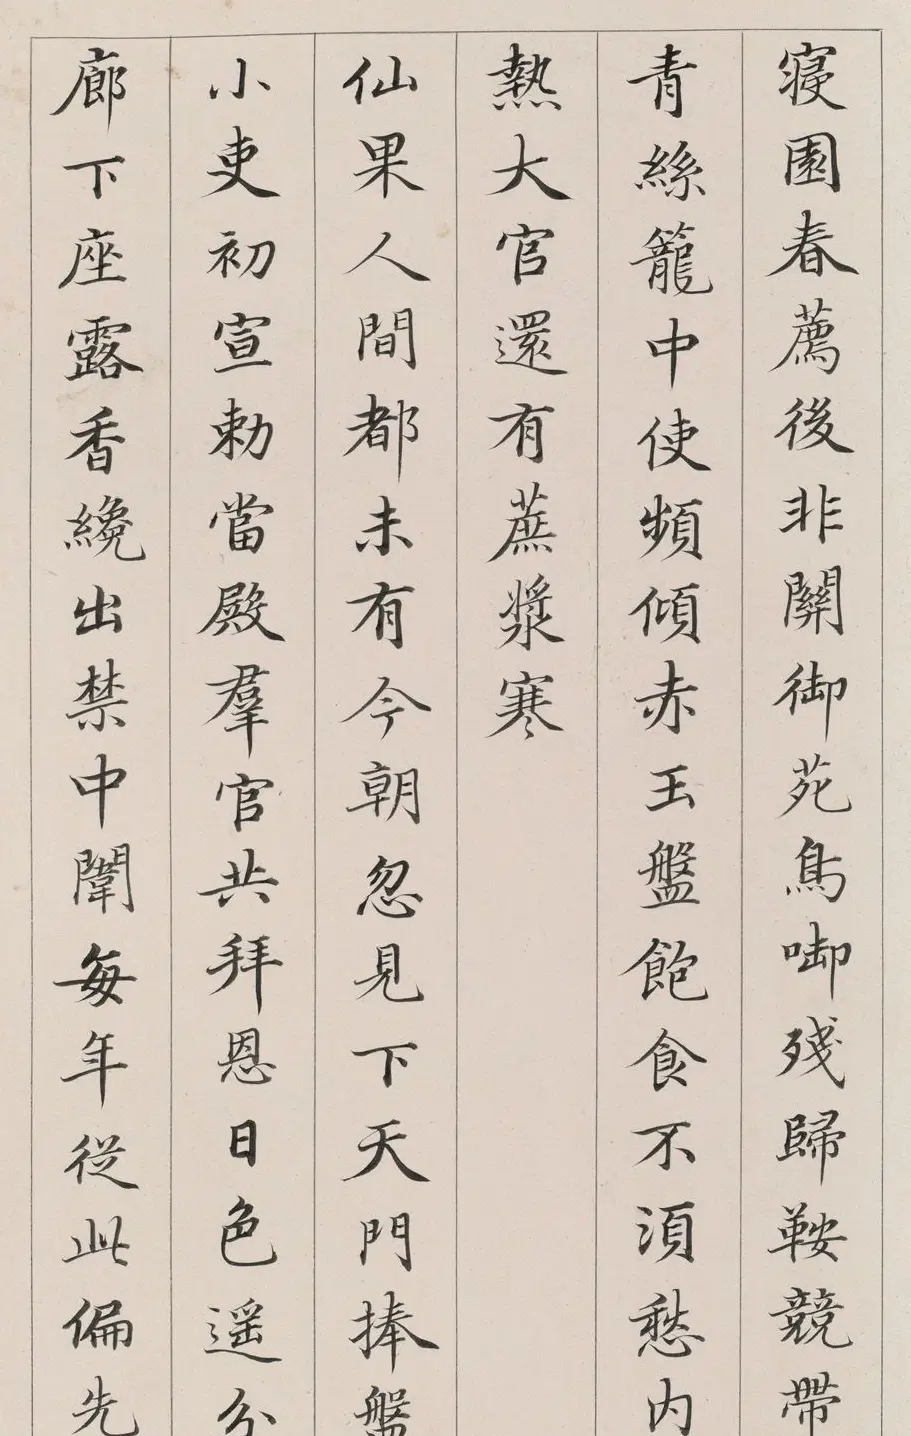 寢園春薦後非關御苑鳥啣殘歸鞍競帶
青絲籠中使頻傾赤玉盤飽食不須愁內
熱大官還有蔗漿寒
仙果人間都未有今朝忽見下天門捧盤
小吏初宣勅當殿羣官共拜恩日色遥分
廊下座露香纔出禁中闈每年從此偏先